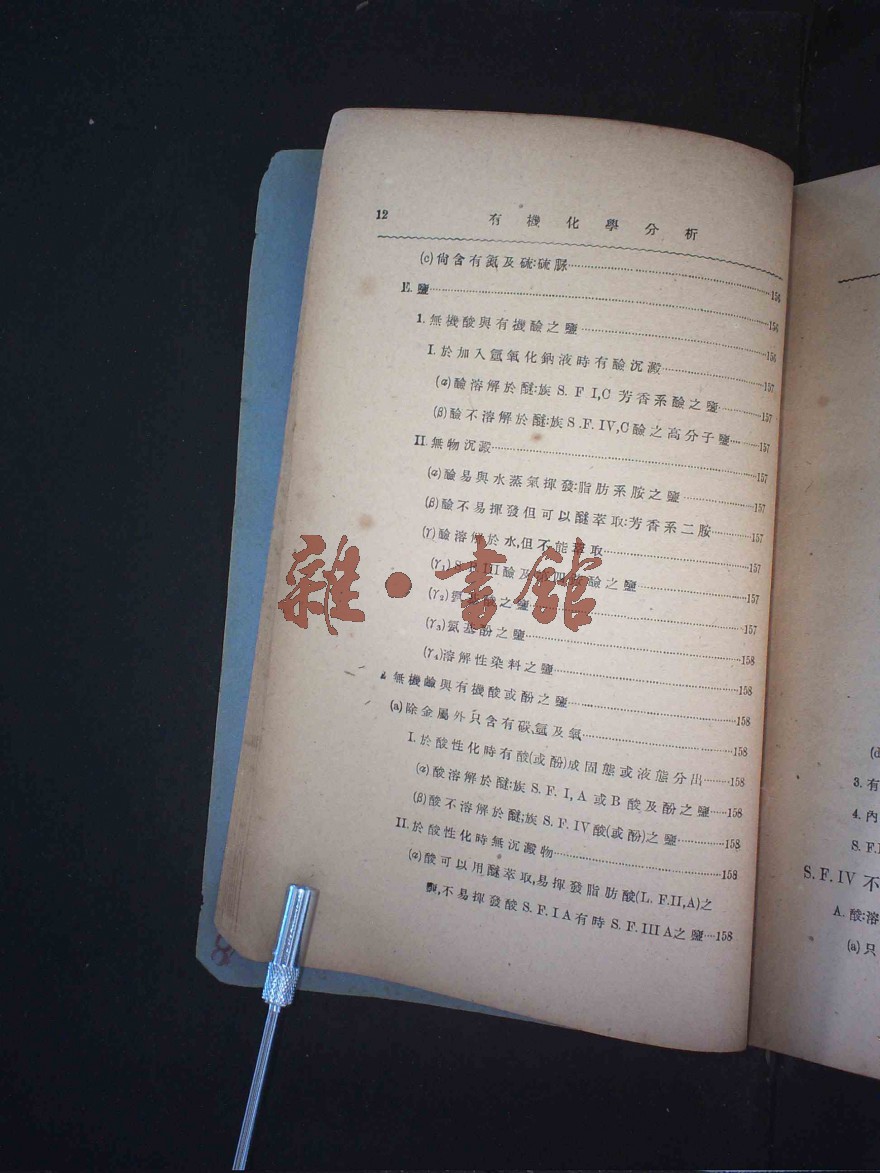 12 有機化學分析
(c)尙含有氮及硫:硫脲……156
E.鹽……156
1.無機酸與有機鹼之鹽……156
I.於加入氫氧化鈉液時有鹼沉澱……157
(α)鹼溶解於醚:族S. F I,C 芳香系鹼之鹽……157
(β)鹼不溶解於醚:族S .F. IV,C鹼之高分子鹽……157
II.無物沉澱……157
(α)鹼易與水蒸氣揮發:脂肪系胺之鹽……157
(β)鹼不易揮發但可以醚萃取:芳香系二胺……157
(γ)鹼溶解於水,但不能萃取……157
(γ₁)S.F.III鹼及 鹼之鹽……157
(γ₂) 酸之鹽……157
(γ₃)氨基酚之鹽……158
(γ₄)溶解性染料之鹽……158
無機鹼與有機酸或酚之鹽……158
(a)除金屬外只含有碳,氫及氧……158
I.於酸性化時有酸(或酚)成固態或液態分出……158
(α)酸溶解於醚:族S. F. I, A 或B 酸及酚之鹽……158
(β)酸不溶解於醚;族S. F. IV 酸(或酚)之鹽……158
II.於酸性化時無沉澱物……158
(α)酸可以用醚萃取,易揮發脂肪酸(L. F.II,A)之
,不易揮發酸S. F. I A有時S. F. III A之鹽……158
雜·書館
(d
3.有
4.內
S. F.I
S. F. IV 不
A.酸:溶
(a)只